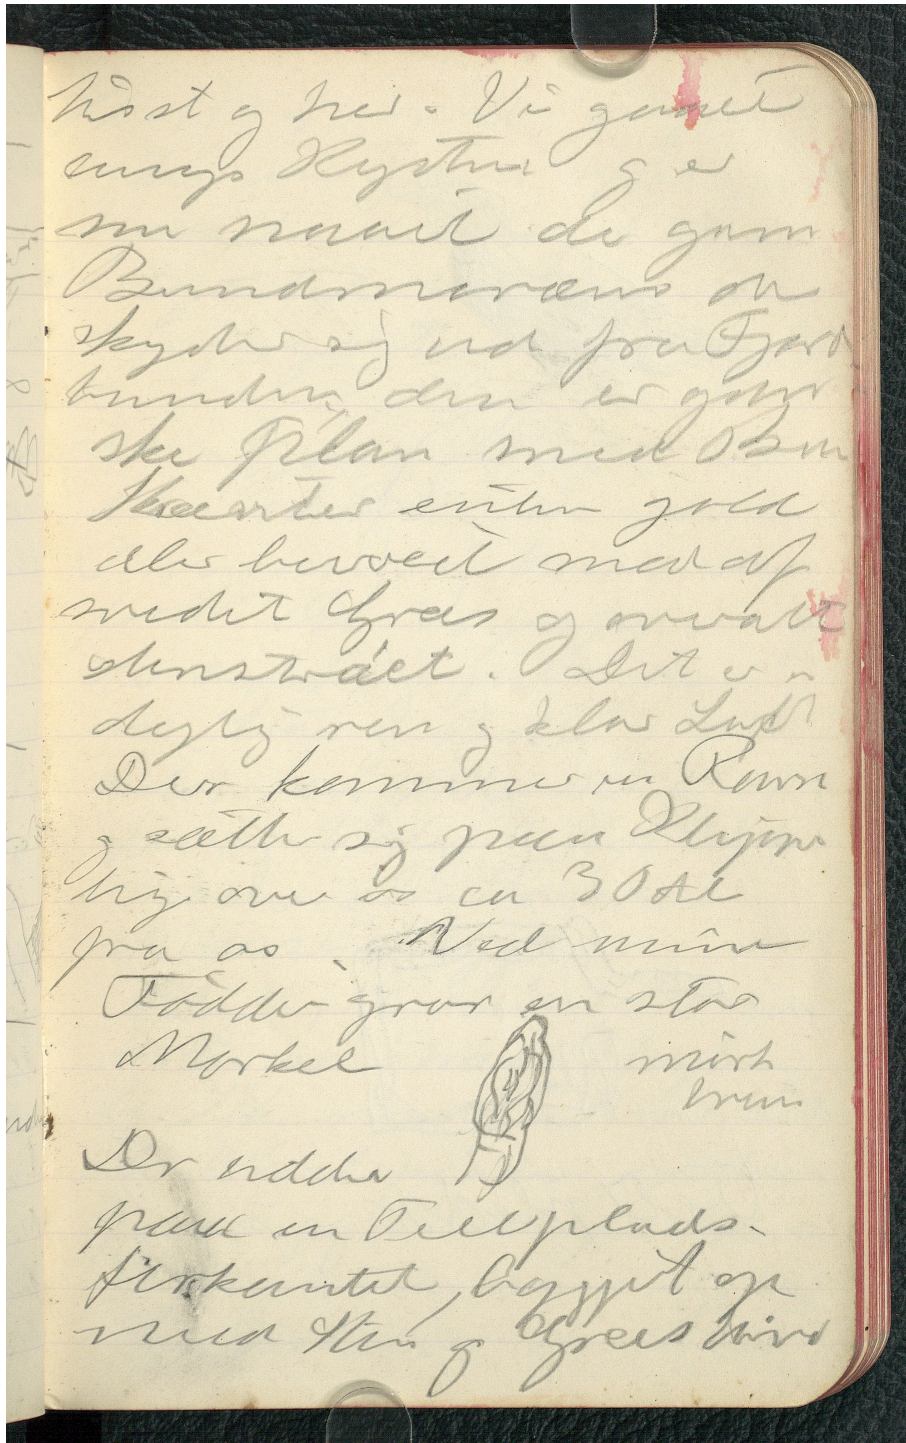 hist og her. Vi gaaet
langs Kysten og er
nu naaet de gam
Bundmoræne der
skyder sig ud fra Fjord
bunden, den er gan
ske plan med
Skrænter enten gold
eller bevoxet med af
svedet Græs og overalt
stenstrøet. Det er
dejlig ren og klar Luft
Der kommer en Ravn
og sætter sig paa
lige over os ca 30 Al
fra os. Ved mine
Fødder gror en stor
Morkel mørk
brun
Der
paa en Teltplads.
firkantet, bygget op
med Sten og Græs